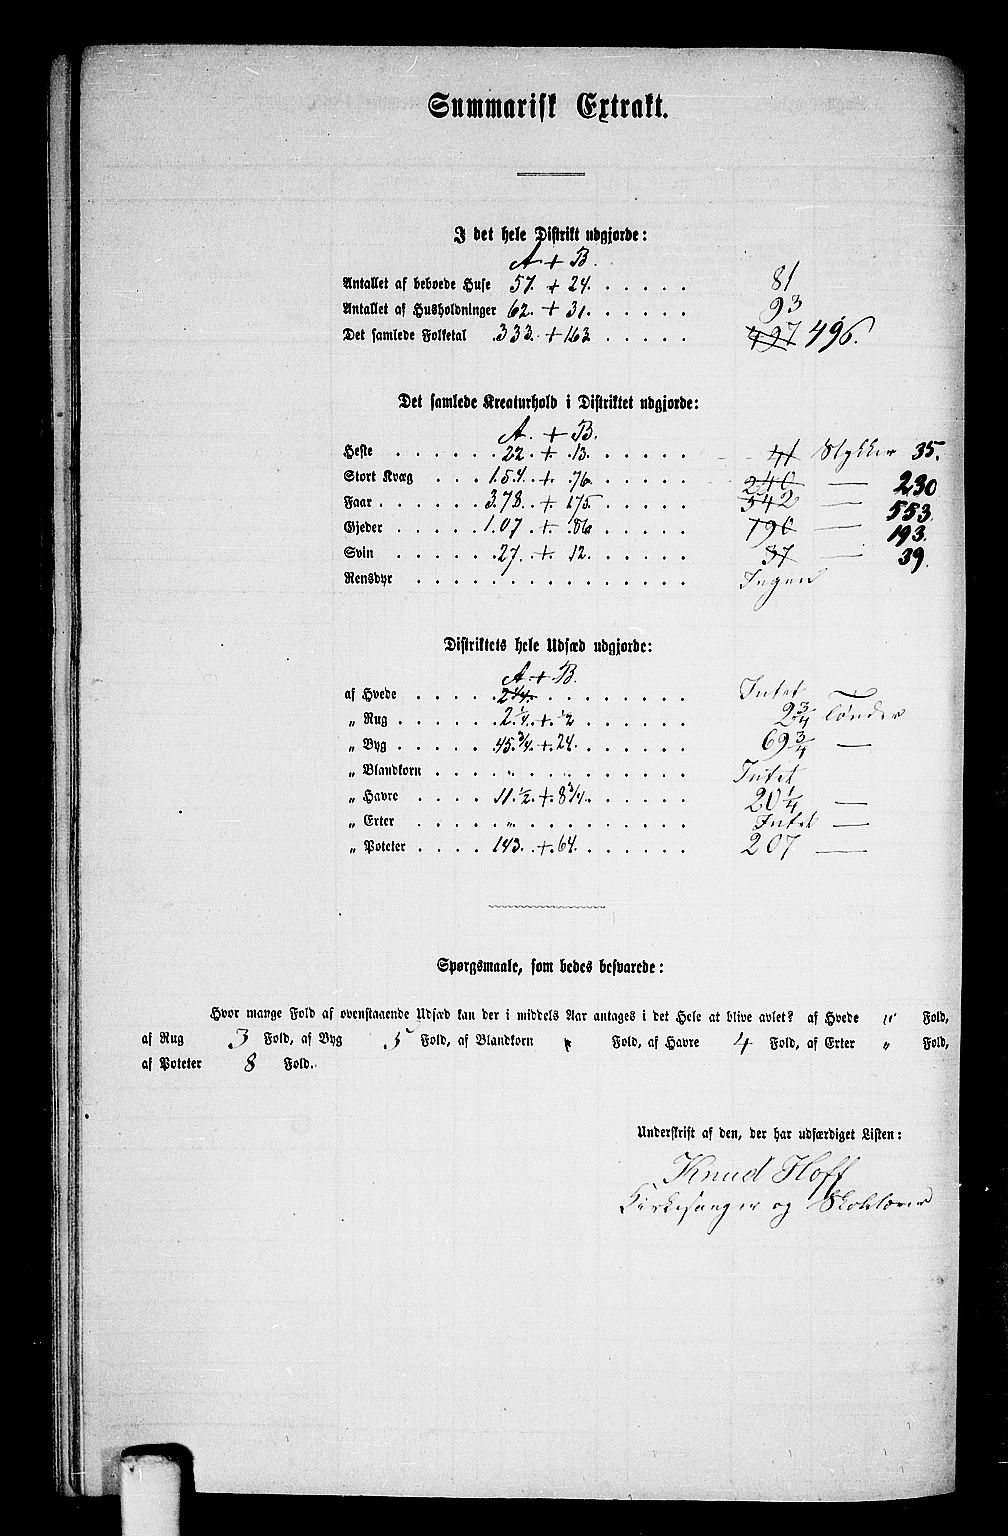 Summarisk Extrakt.
I det hele Distrikt udgjorde:
A + B.
Antallet af beboede Huse 57. + 24. . . . . . 81
Antallet af Husholdninger 62. + 31. . . . . . 93
Det samlede Folketal 333. + 163 . . . . . 497 496.
Det samlede Kreaturhold i Distriktet udgjorde:
A. + B.
Heste . . . . . . 22. + 13. . . . . 41 Stykker 35.
Stort Kvæg . . . 154. + 76. . . . . 240 — 230
Faar . . . . . . 378. + 175 . . . . . 542 — 553.
Gjeder . . . . . 107 + 86 . . . . . 190 — 193.
Svin . . . . . . 27. + 12. . . . . 37 — 39.
Rensdyr . . . . . . . . . . . . . Ingen
Distriktets hele Udsæd udgjorde:
A + B.
af Hvede . . . . 2 1/4. . . . . . . Intet
„ Rug . . . . . 2 1/4. + 1/2 . . . . . 2 3/4 Tønder
„ Byg . . . . . 45 3/4. + 24. . . . . 69 3/4 —
„ Blandkorn . . . . „ . . „ . . . . . Intet
„ Havre . . . . 11 1/2. + 8 3/4. . . . . 20 1/4 —
„ Erter . . . . . „ . . . . . . . Intet —
„ Poteter . . . . 143. + 64. . . . . 207 —
Spørgsmaale, som bedes besvarede:
Hvor mange Fold af ovenstaaende Udsæd kan der i middels Aar antages i det Hele at blive avlet? af Hvede „ Fold,
af Rug 3 Fold, af Byg 5 Fold, af Blandkorn „ Fold, af Havre 4 Fold, af Erter „ Fold,
af Poteter 8 Fold.
Underskrift af den, der har udfærdiget Listen:
Knud Hoff
Kirkesanger og Skolelærer